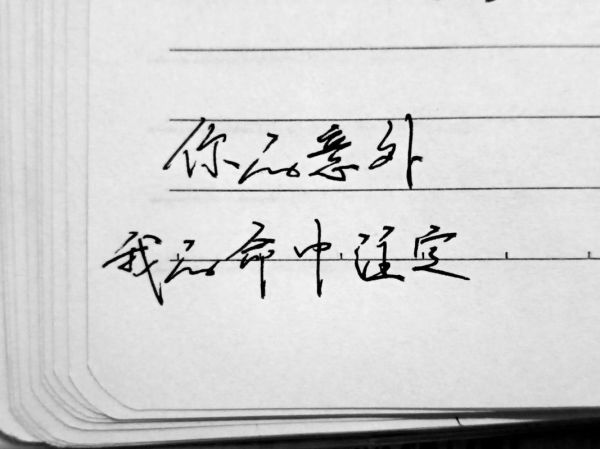 你的意外
我的命中註定